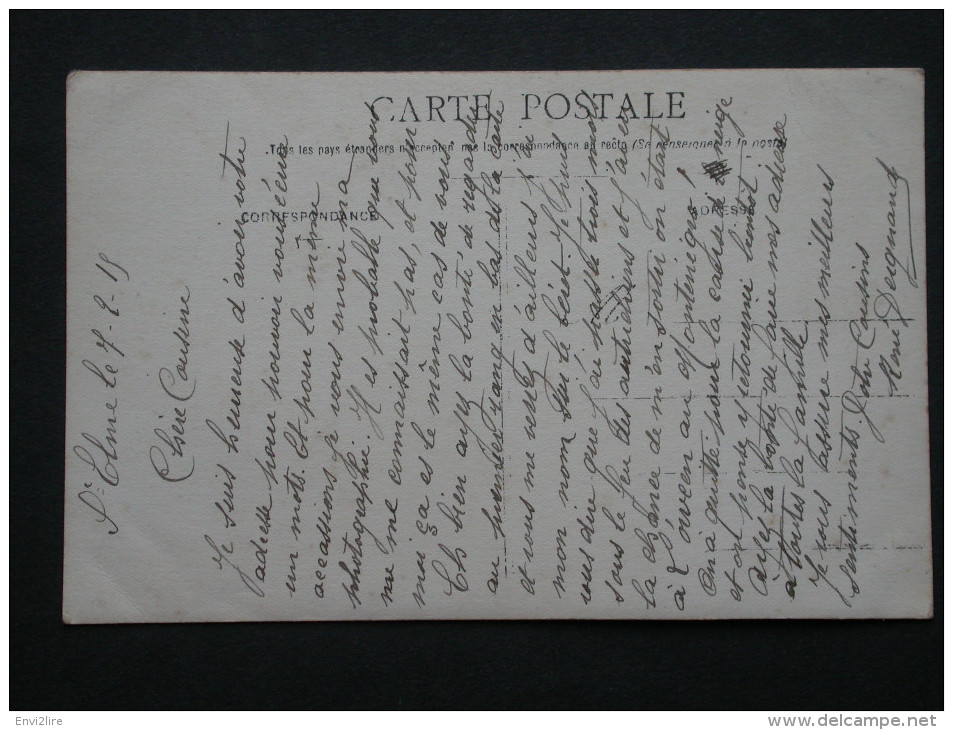 CARTE POSTALE
Tous les pays étrangers n'acceptent pas la correspondance au recto (Se renseigner à la poste)
CORRESPONDANCE
ADRESSE
St Elme le 7-2-15
Chère Cousine
Je suis heureuse d'avoir votre
adresse pour pouvoir vous écrire
un mots. Et pour la même
occassions je vous envoie ma
photographie. Il es probable que vous
me ne connaissait pas, et pour
moi ça es le même cas de vous
Eh bien ayez la bonté de regarder
au premier rang en bas de la carte
et vous me voyez d'ailleurs j'ai
mon nom sur le béret. Je puis
vous dire que j'ai passé trois mois
sous le feu des autrichiens et j'ai eu
la chance de m'en sortir on était
à au Monténégro!
On à quitté pour la cause de neige
et on pense y retourné bientôt.
àyez la bonté de faire mes adieuse
a toutes la famille
Je vous assure mes meilleurs
sentiments. Votre Cousins
René
Envi2lire
www.delcampe.net